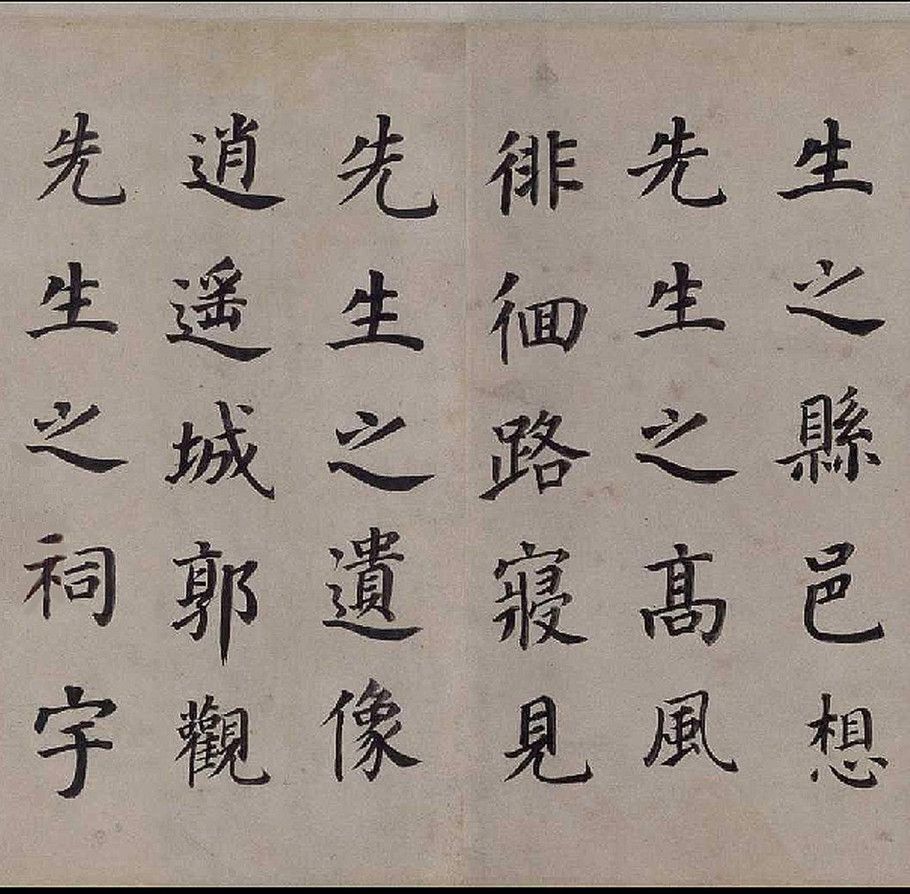 生之縣邑想
先生之髙風
徘徊路寢見
先生之遺像
逍遥城郭觀
先生之祠宇